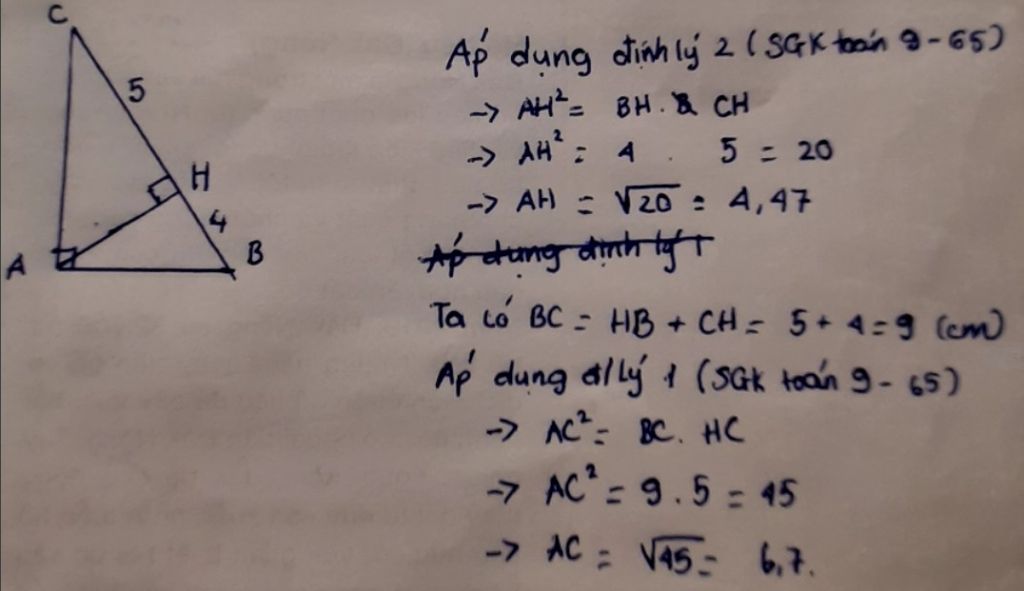 C
5
H
4
A
B
Áp dụng định lý 2 (SGK toán 9-65)
-> AH² = BH. CH
-> AH² = 4 . 5 = 20
-> AH = √20 = 4,47
Áp dụng định lý 1
Ta có BC = HB + CH = 5 + 4 = 9 (cm)
Áp dụng đ/lý 1 (SGK toán 9-65)
-> AC² = BC. HC
-> AC² = 9 . 5 = 45
-> AC = √45 = 6,7.